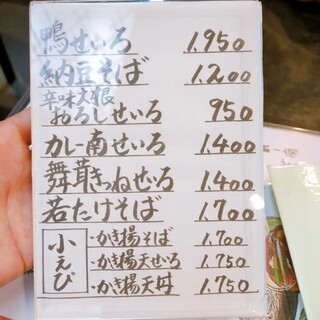 鴨せいろ 1,950
納豆そば 1,200
辛味大根
おろしせいろ 950
カレー南せいろ 1,400
舞茸きつねせいろ 1,400
若たけそば 1,700
小えび
・かき揚そば 1,700
・かき揚天せいろ 1,750
・かき揚天丼 1,750